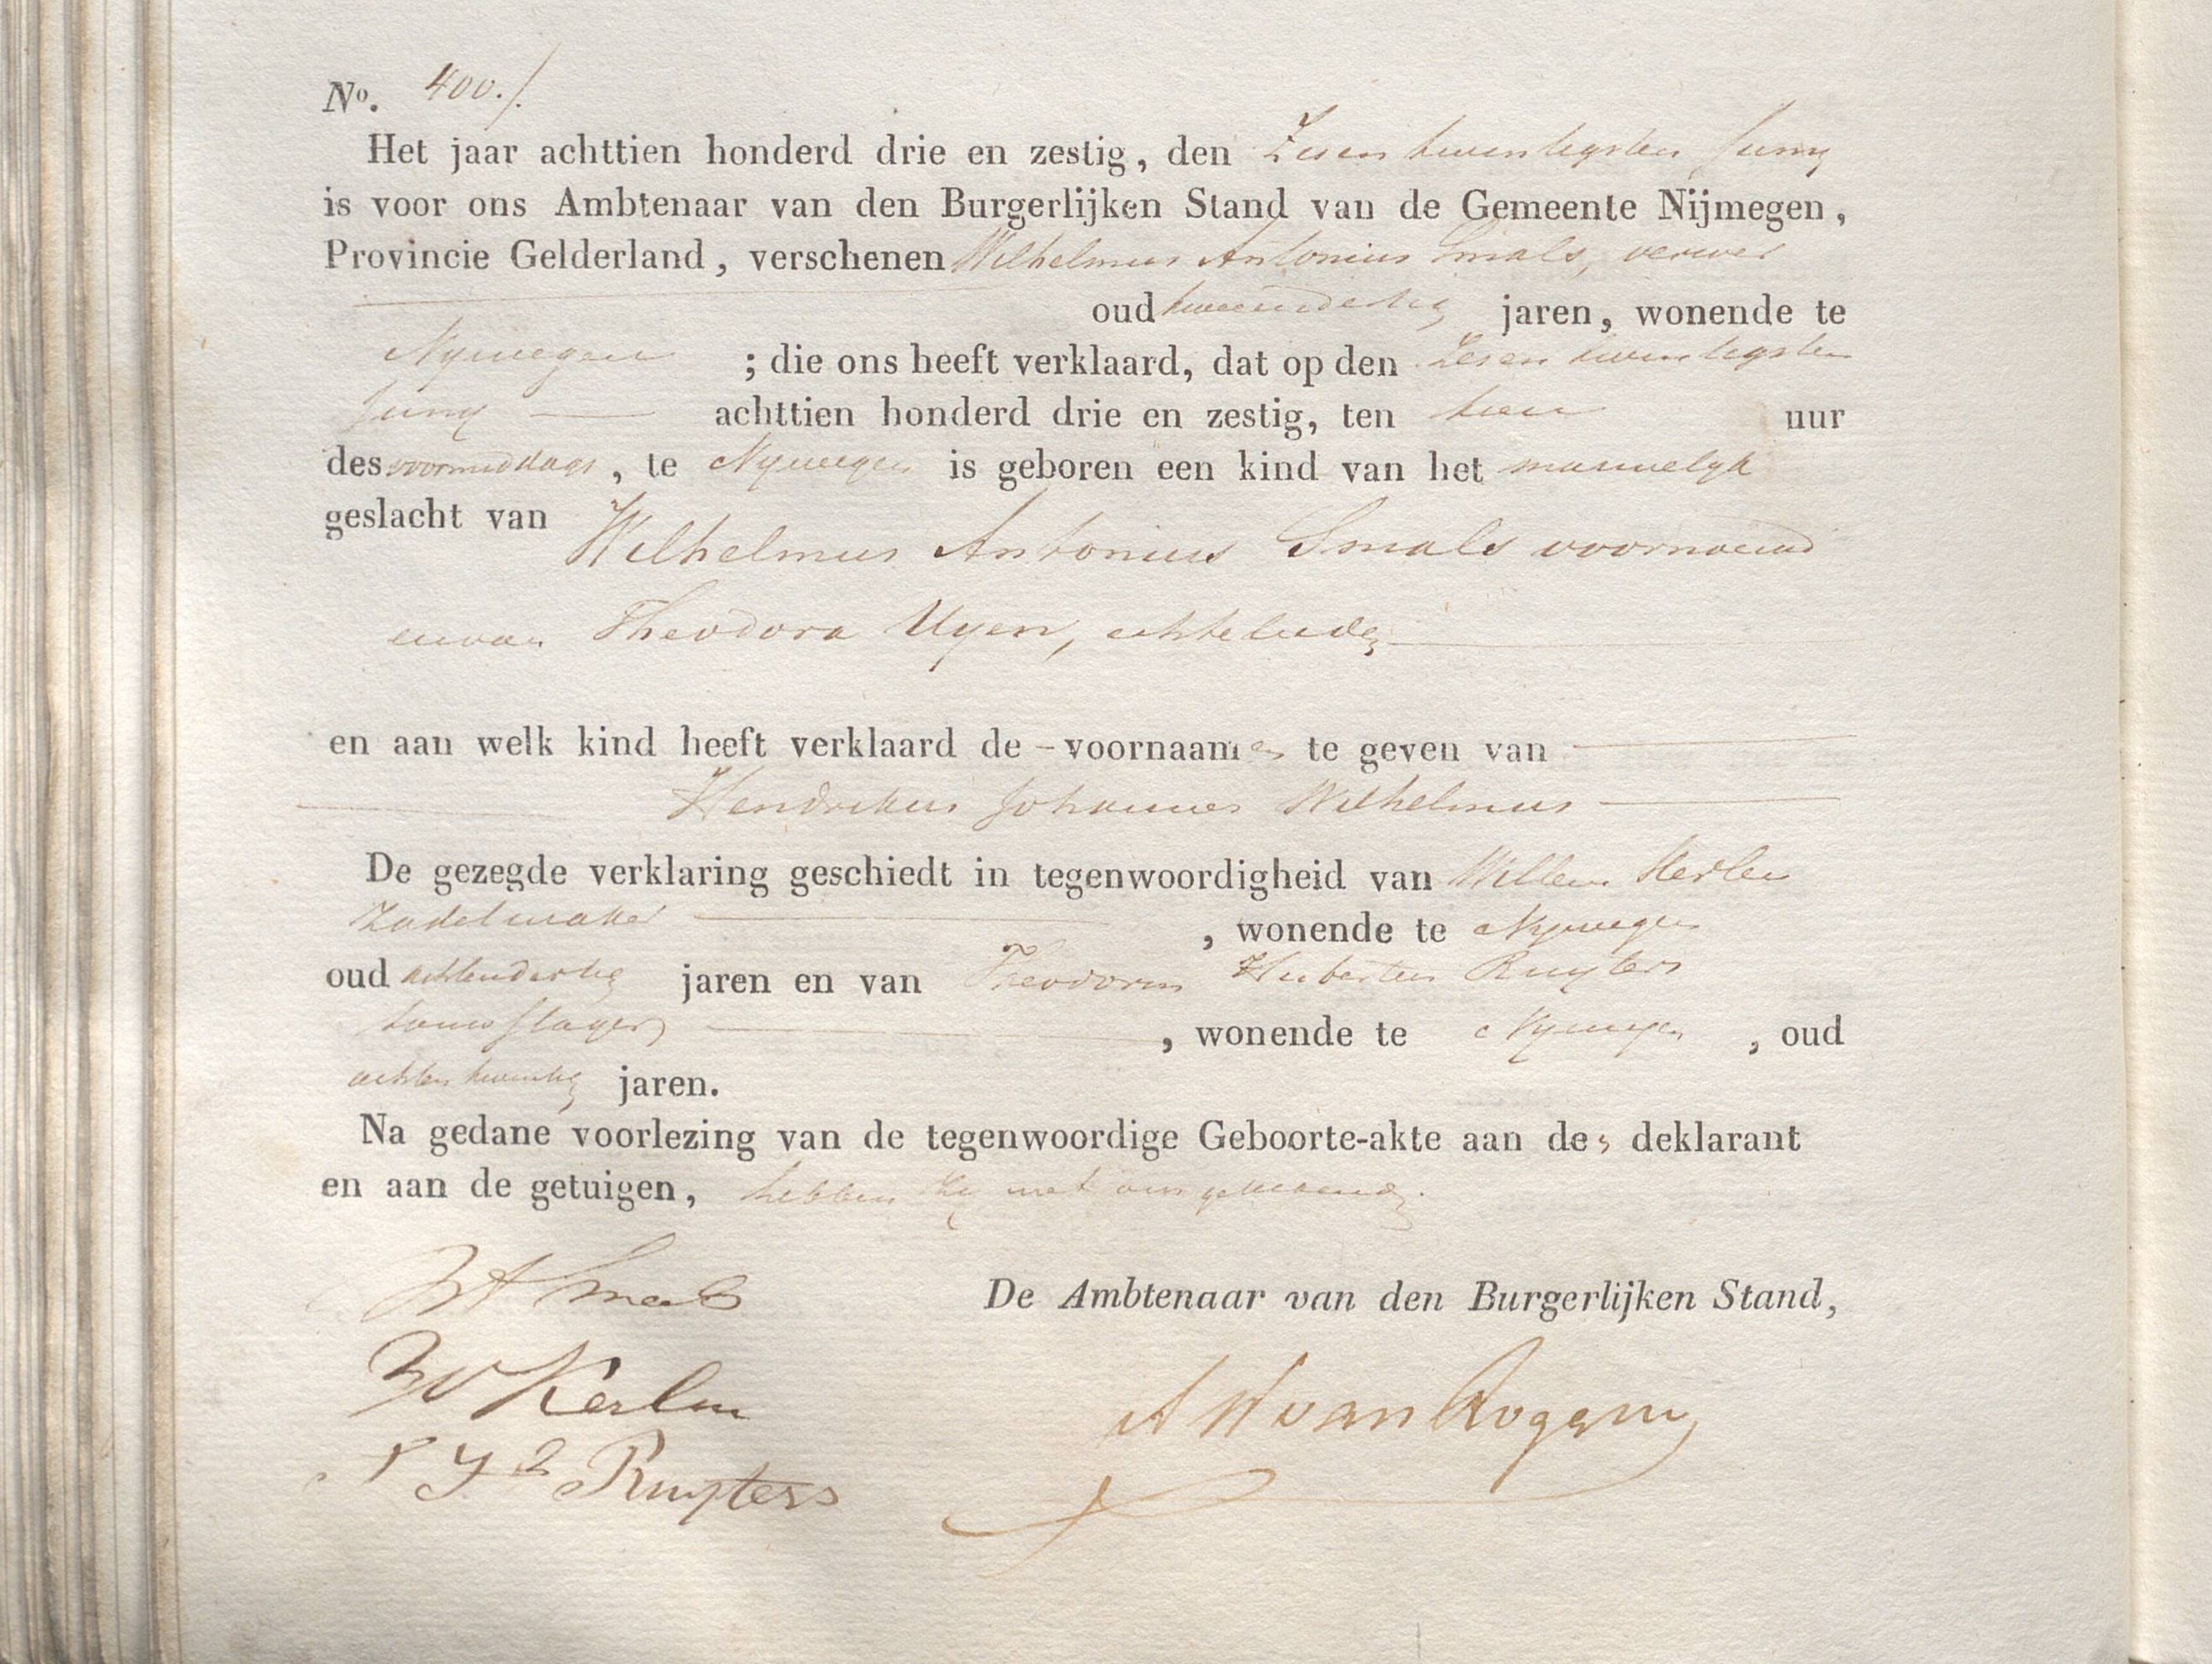 No. 400./.
Het jaar achttien honderd drie en zestig, den Zesen twentigsten Juny
is voor ons Ambtenaar van den Burgerlijken Stand van de Gemeente Nijmegen,
Provincie Gelderland, verschenen Wilhelmus Antonius Smals, verwer
oud tweendertig jaren, wonende te
Nymegen ; die ons heeft verklaard, dat op den Zesen twintigsten
Juny achttien honderd drie en zestig, ten tien uur
des voormiddags, te Nymegen is geboren een kind van het mannelyk
geslacht van Wilhelmus Antonius Smals voornoemd
en van Theodora Uyen, echtelieden
en aan welk kind heeft verklaard de - voornaamen te geven van
Hendrikus Johannes Wilhelmus
De gezegde verklaring geschiedt in tegenwoordigheid van Willem Kerlen
Zadelmaker , wonende te Nymegen
oud achtendertig jaren en van Theodorus Hubertus Ruyters
touwslager , wonende te Nymegen , oud
achten twintig jaren.
Na gedane voorlezing van de tegenwoordige Geboorte-akte aan den deklarant
en aan de getuigen, hebben zy met ons geteekend.
WA Smals
De Ambtenaar van den Burgerlijken Stand,
W Kerlen
Ruyters